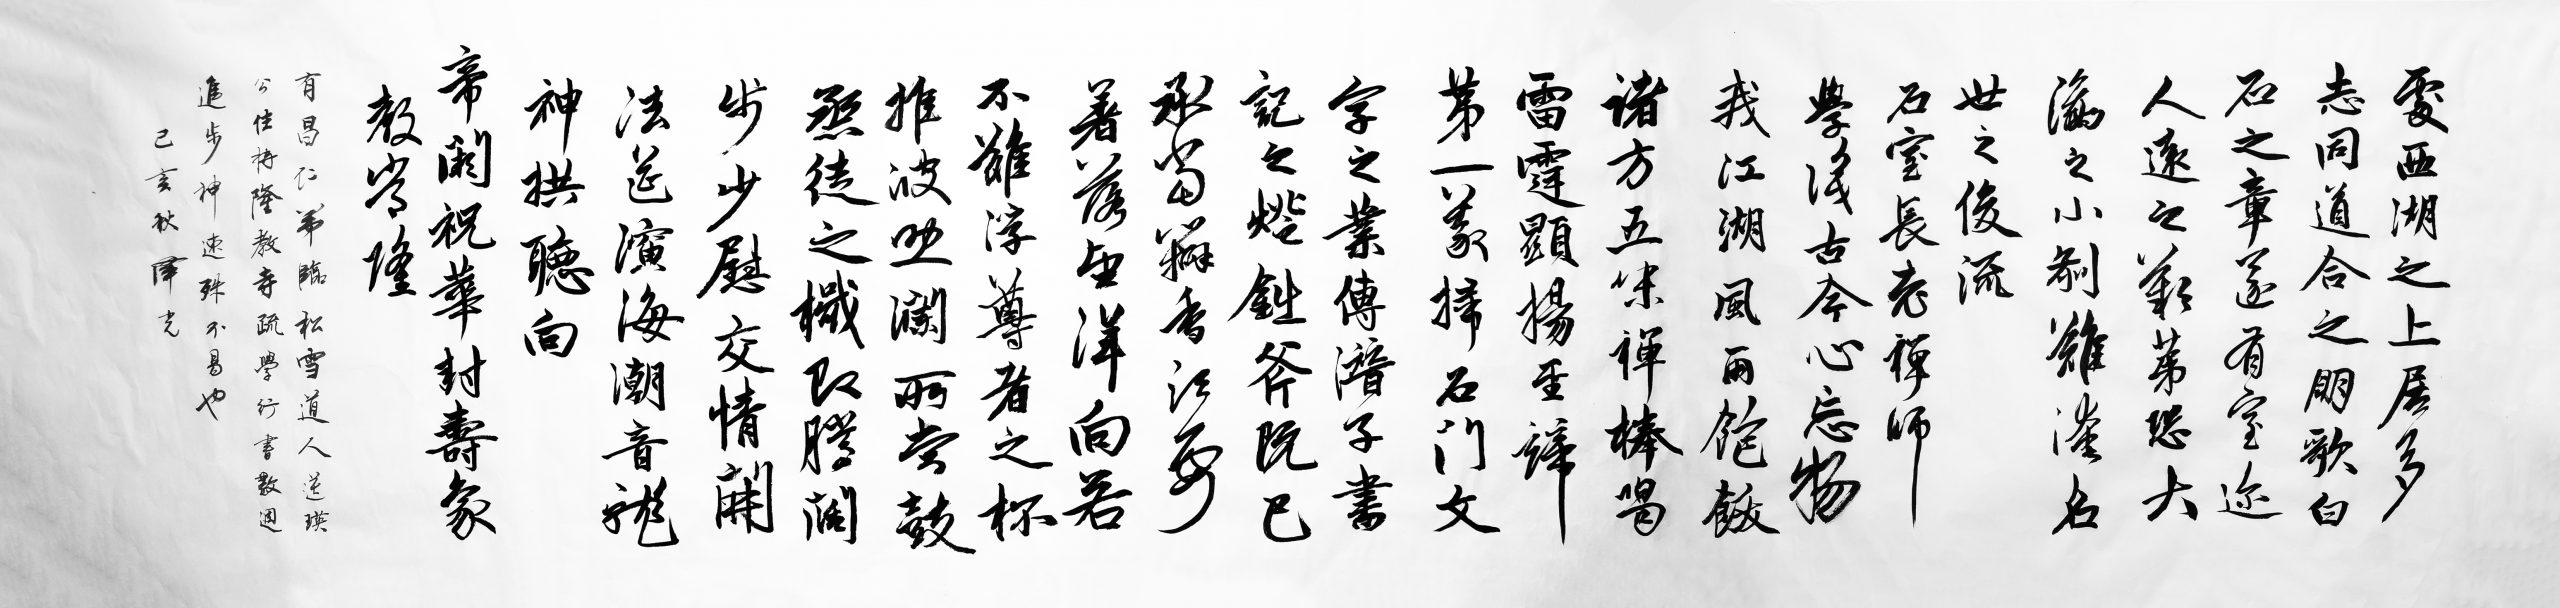 處西湖之上居多
志同道合之朋歌白
石之章遂有室迩
人遠之歎第恐大
瀛之小刹難淹名
世之俊流
石室長老禪師
學識古今心忘物
我江湖風雨飽飫
諸方五味禪棒喝
雷霆顯揚至諦
第一義掃石門文
字之業傳潛子書
記之燈鈯斧既已
承當瓣香須要
著落望洋向若
不難浮尊者之杯
推波助瀾所當鼓
烝徒之檝即騰闊
步少慰交情開
法筵演海潮音龍
神拱聽向
帝闕祝華封壽象
教常隆
有昌仁弟臨松雪道人送瑛
公住持隆教寺疏學行書數週
進步神速殊不易也
己亥秋澤光